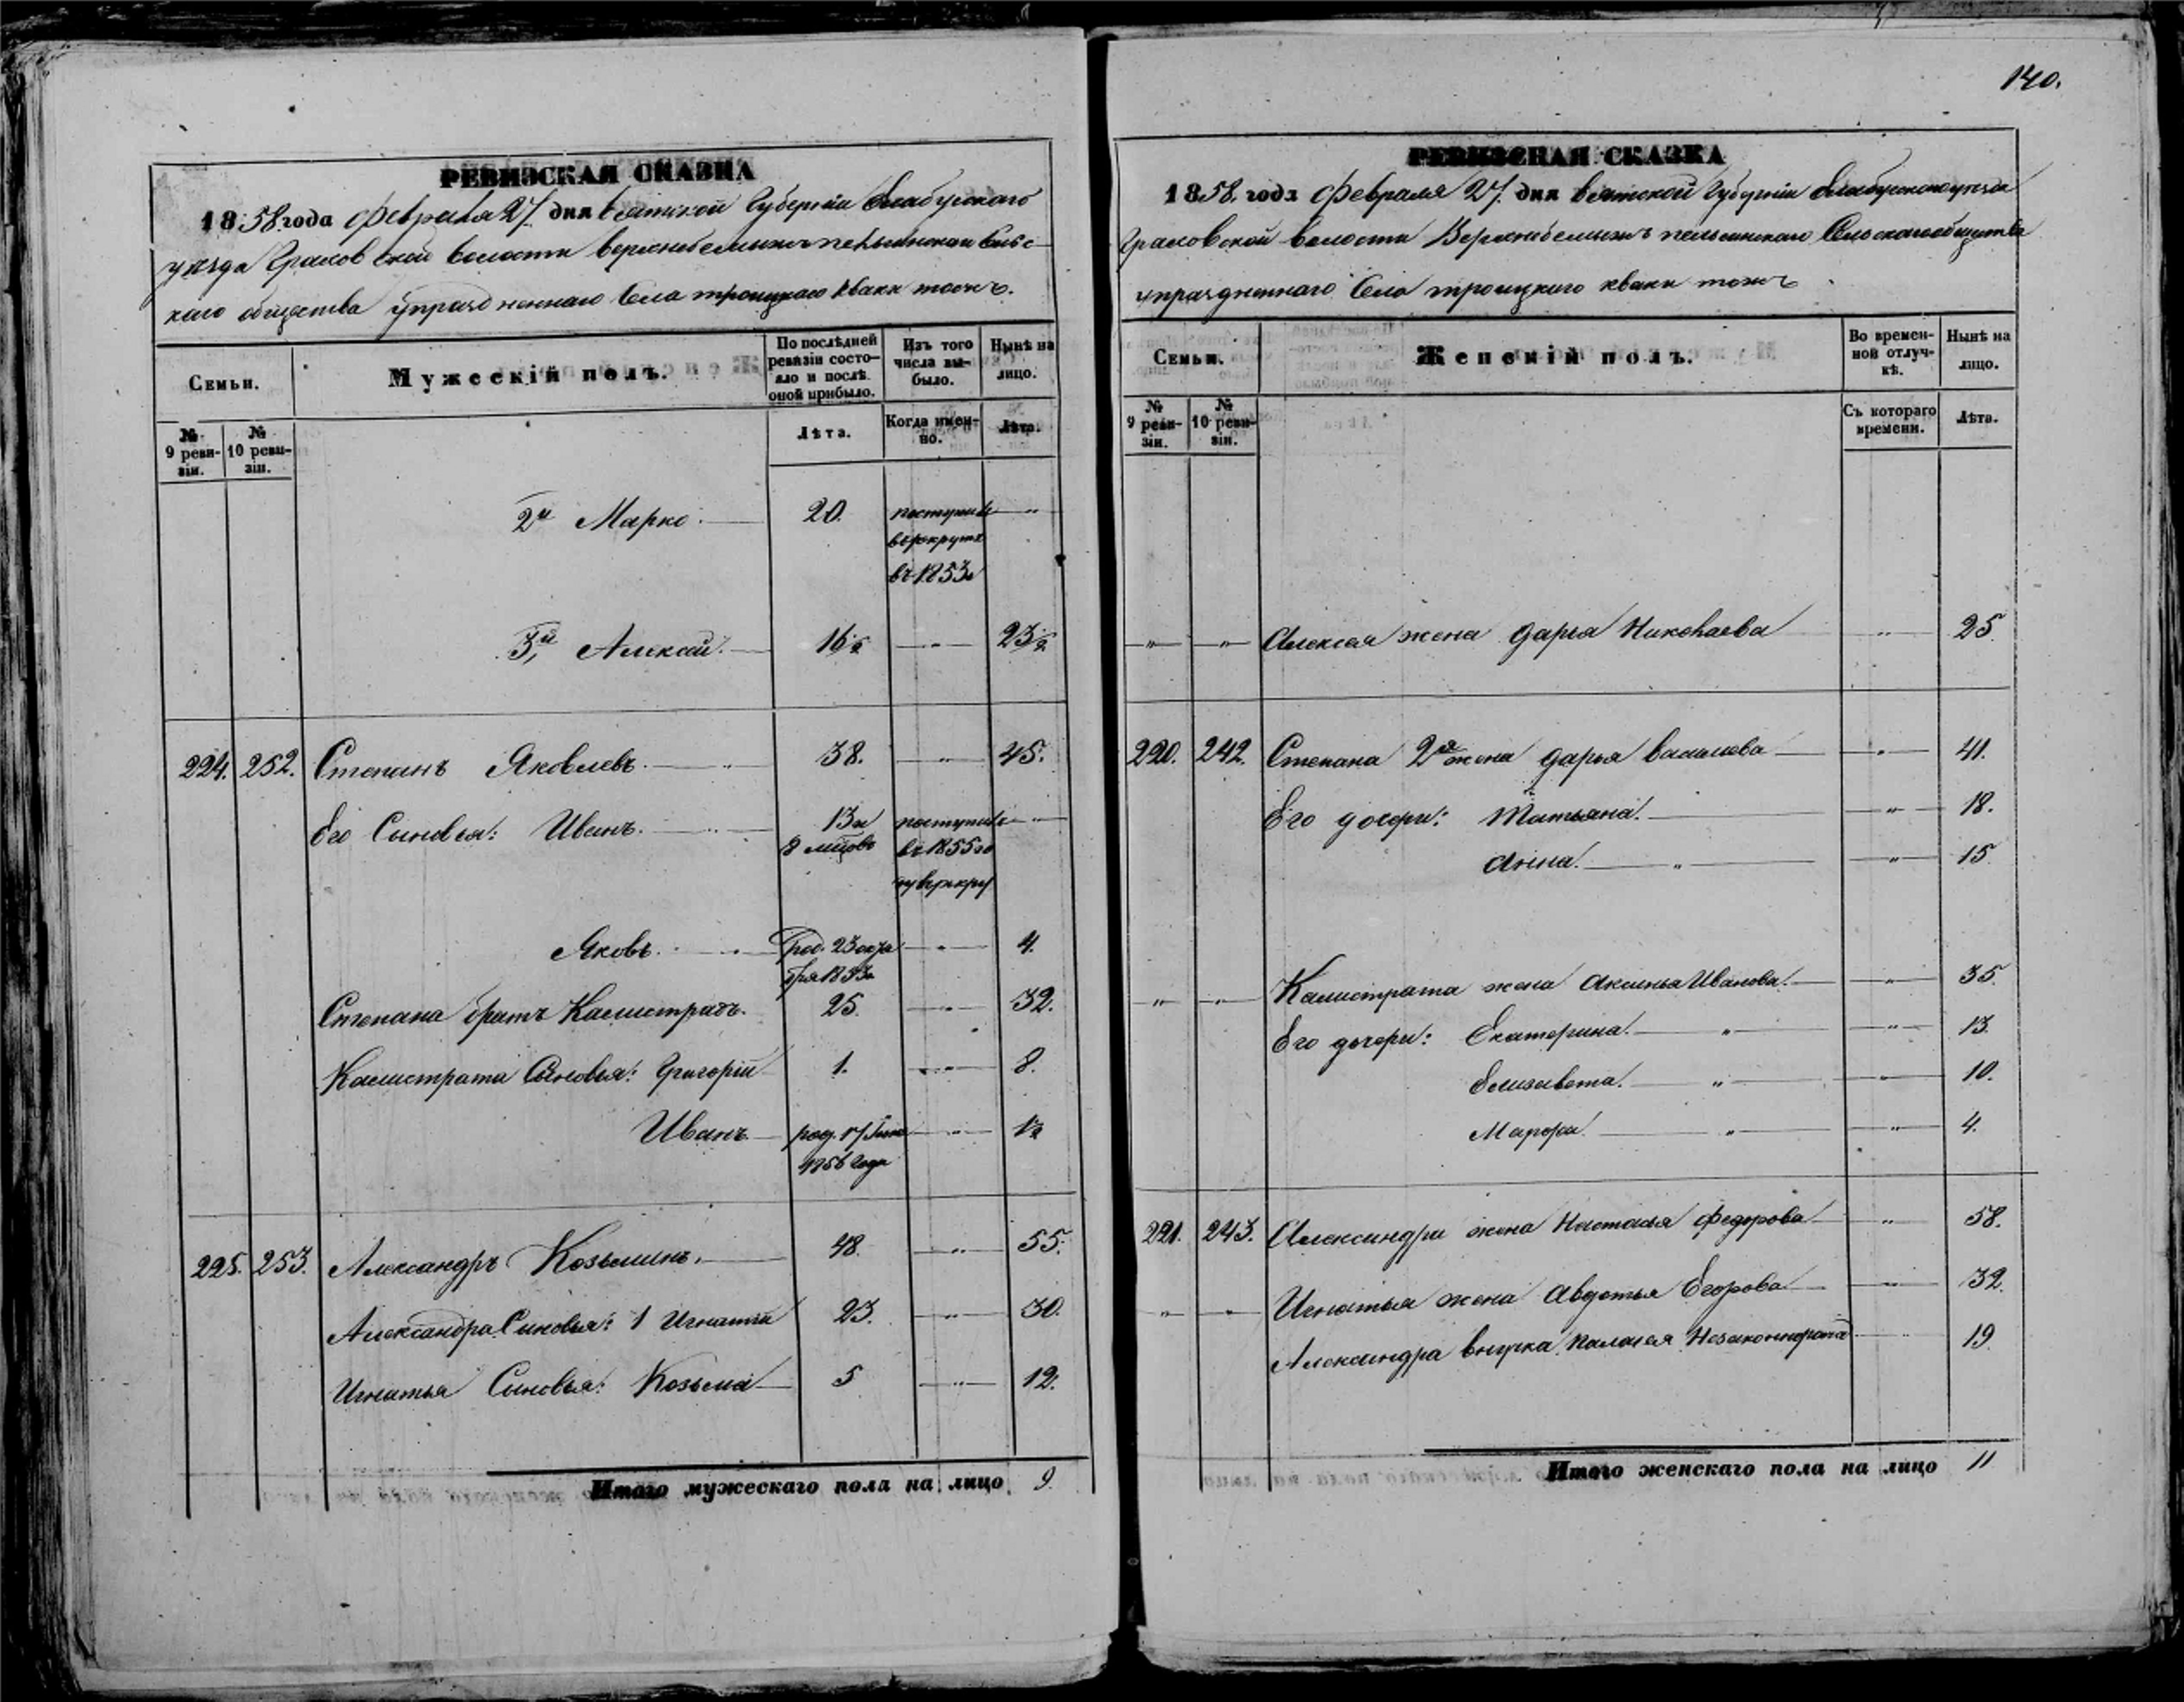 РЕВИЗСКАЯ СКАЗКА
1858 года февраля 27 дня Вятской Губернiи Елабужскаго
уѣзда Граховской волости
каго общества упраздненнаго села троицкаго квакн тожъ.
Семьи.
Мужескiй полъ.
По послѣдней ревизiи состояло и послѣ оной прибыло.
Изъ того числа выбыло.
Нынѣ на лицо.
№ 9 ревизiи.
№ 10 ревизiи.
Лѣта.
Когда именно.
Лѣта.
2й Марко. 20. поступилъ —"—
въ рекруты
въ 1853
3й Алексѣй. 16½ —"— 23½
224. 252. Степанъ Яковлевъ. 38. —"— 45.
Его Сыновья: Иванъ. 13 и поступилъ —"—
8 мѣцовъ въ 1855
Яковъ. Род. 23 —"— 4.
бря 1853
Степана братъ Калистратъ. 25. —"— 32.
Калистрата Сыновья: Григорiй 1. —"— 8.
Иванъ — род. 17 —"— 1½
1856 года
225. 253. Александръ Козьминъ. 48. —"— 55.
Александра Сыновья: 1 Игнатiй 23. —"— 30.
Игнатья Сыновья: Козьма 5 —"— 12.
Итого мужескаго пола на лицо 9.
140.
РЕВИЗСКАЯ СКАЗКА
1858. года февраля 27. дня Вятской Губернiи Елабужскаго уѣзда
Граховской волости Сельскаго общества
упраздненнаго Села троицкаго квакн тожъ
Семьи.
Женскiй полъ.
Во временной отлучкѣ.
Нынѣ на лицо.
№ 9 ревизiи.
№ 10 ревизiи.
Съ котораго времени.
Лѣта.
—"— —"— Алексея жена Дарья Николаева —"— 25.
220. 242. Степана 2я жена Дарья Васильева —"— 41.
Его дочери: Татьяна. —"— 18.
Анна. —"— —"— 15.
—"— —"— Калистрата жена Аксинья Иванова. —"— 35.
Его дочери: Екатерина. —"— —"— 13.
Елизавета. —"— —"— 10.
Марфа. —"— —"— 4.
221. 243. Александра жена Настасья Федорова —"— 58.
—"— —"— Игнатья жена Авдотья Егорова —"— 32.
Александра внучка Палагея —"— 19.
Итого женскаго пола на лицо 11